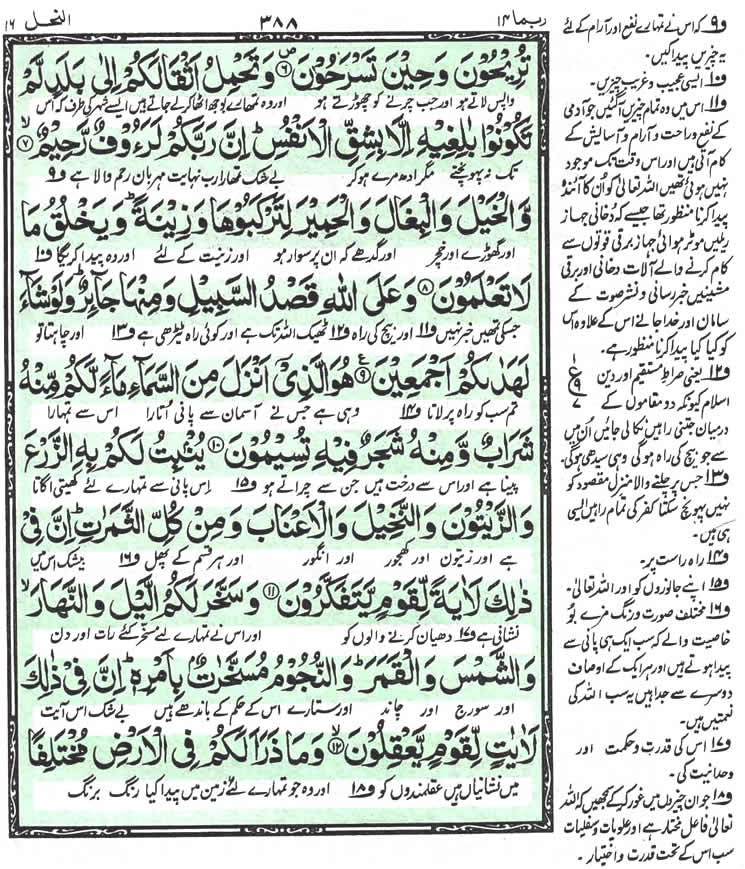 ربما ١٤
٣٨٨
النحل ١٦
تُرِيْحُوْنَ وَحِيْنَ تَسْرَحُوْنَ ۪﴿۶﴾ وَتَحْمِلُ اَثْقَالَكُمْ اِلٰى بَلَدٍ لَّمْ
واپس لاتے ہو اور جب چرنے کو چھوڑتے ہو اور وہ تمہارے بوجھ اٹھا کر لے جاتے ہیں ایسے شہر کی طرف کہ اس
تَكُوْنُوْا بٰلِغِيْهِ اِلَّا بِشِقِّ الْاَنْفُسِ ؕ اِنَّ رَبَّكُمْ لَرَءُوْفٌ رَّحِيْمٌ ۙ﴿۷﴾
تک نہ پہونچتے مگر ادھ مرے ہو کر بے شک تمہارا رب نہایت مہربان رحم والا ہے و۹
وَّ الْخَيْلَ وَالْبِغَالَ وَالْحَمِيْرَ لِتَرْكَبُوْهَا وَزِيْنَةً ؕ وَيَخْلُقُ مَا
اور گھوڑے اور خچر اور گدھے کہ ان پر سوار ہو اور زینت کے لئے اور وہ پیدا کریگا و۱۰
لَا تَعْلَمُوْنَ ﴿۸﴾ وَعَلَى اللّٰهِ قَصْدُ السَّبِيْلِ وَمِنْهَا جَآئِرٌ ؕ وَلَوْ شَآءَ
جسکی تمہیں خبر نہیں و۱۱ اور بیچ کی راہ و۱۲ ٹھیک اللہ تک ہے اور کوئی راہ ٹیڑھی ہے و۱۳ اور چاہتا تو
لَهَدٰىكُمْ اَجْمَعِيْنَ ﴿۹﴾ هُوَ الَّذِيْۤ اَنْزَلَ مِنَ السَّمَآءِ مَآءً لَّكُمْ مِّنْهُ
تم سب کو راہ پر لاتا و۱۴ وہی ہے جس نے آسمان سے پانی اُتارا اس سے تمہارا
شَرَابٌ وَّ مِنْهُ شَجَرٌ فِيْهِ تُسِيْمُوْنَ ﴿۱۰﴾ يُنْۢبِتُ لَكُمْ بِهِ الزَّرْعَ
پینا ہے اور اس سے درخت ہیں جن سے چراتے ہو و۱۵ اِس پانی سے تمہارے لئے کھیتی اگاتا
وَالزَّيْتُوْنَ وَالنَّخِيْلَ وَالْاَعْنَابَ وَمِنْ كُلِّ الثَّمَرٰتِ ؕ اِنَّ فِيْ
ہے اور زیتون اور کھجور اور انگور اور ہر قسم کے پھل و۱۶ بیشک اس میں
ذٰلِكَ لَاٰيَةً لِّقَوْمٍ يَّتَفَكَّرُوْنَ ﴿۱۱﴾ وَسَخَّرَ لَكُمُ الَّيْلَ وَالنَّهَارَ ۙ
نشانی ہے و۱۷ دھیان کرنے والوں کو اور اس نے تمہارے لئے مسخر کئے رات اور دن
وَالشَّمْسَ وَالْقَمَرَ ؕ وَالنُّجُوْمُ مُسَخَّرٰتٌۢ بِاَمْرِهٖ ؕ اِنَّ فِيْ ذٰلِكَ
اور سورج اور چاند اور ستارے اس کے حکم کے باندھے ہیں بے شک اس آیت
لَاٰيٰتٍ لِّقَوْمٍ يَّعْقِلُوْنَ ۙ﴿۱۲﴾ وَمَا ذَرَاَ لَكُمْ فِي الْاَرْضِ مُخْتَلِفًا
میں نشانیاں ہیں عقلمندوں کو و۱۸ اور وہ جو تمہارے لئے زمین میں پیدا کیا رنگ برنگ
ع ۹ ۷
و۹ کہ اس نے تمہارے نفع اور آرام کے لئے
یہ چیزیں پیدا کیں۔
و۱۰ ایسی عجیب و غریب چیزیں۔
و۱۱ اس میں وہ تمام چیزیں آگئیں جو آدمی
کے نفع و راحت و آرام و آسایش کے
کام آتی ہیں اور اس وقت تک موجود
نہیں ہوئی تھیں اللہ تعالیٰ کو اُن کا آئندہ
پیدا کرنا منظور تھا جیسے کہ دُخانی جہاز
ریلیں موٹر ہوائی جہاز برقی قوتوں سے
کام کرنے والے آلات دخانی اور برقی
مشینیں خبر رسانی و نشر صوت کے
سامان اور خدا جانے اس کے علاوہ اس
کو کیا کیا پیدا کرنا منظور ہے۔
و۱۲ یعنی صراطِ مستقیم اور دین
اسلام کیونکہ دو مقاموں کے
درمیان جتنی راہیں نکالی جائیں اُن میں
سے جو بیچ کی راہ ہو گی وہی سیدھی ہوگی۔
و۱۳ جس پر چلنے والا منزل مقصود کو
نہیں پہونچ سکتا کفر کی تمام راہیں ایسی
ہی ہیں۔
و۱۴ راہ راست پر۔
و۱۵ اپنے جانوروں کو اور اللہ تعالیٰ۔
و۱۶ مختلف صورت و رنگ مزے بو
خاصیت والے کہ سب ایک ہی پانی سے
پیدا ہوتے ہیں اور ہر ایک کے اوصاف
دوسرے سے جدا ہیں یہ سب اللہ کی
نعمتیں ہیں۔
و۱۷ اس کی قدرت و حکمت اور
وحدانیت کی۔
و۱۸ جو ان چیزوں میں غور کرکے سمجھیں کہ اللہ
تعالیٰ فاعل مختار ہے اور علویات و سفلیات
سب اس کے تحت قدرت و اختیار۔